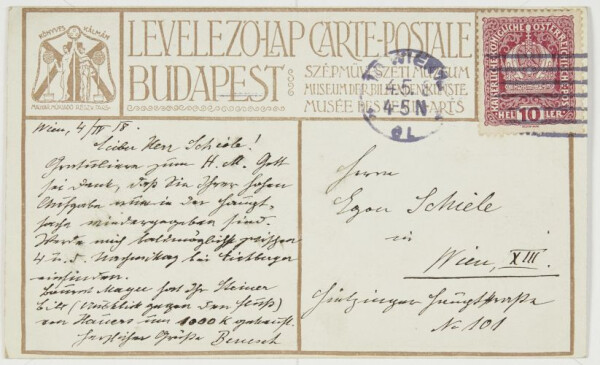 KÖNYVES KÁLMÁN
MAGYAR MŰKIADÓ RÉSZV. TÁRS.
LEVELEZŐ-LAP CARTE-POSTALE
BUDAPEST
SZÉPMŰVÉSZETI MÚZEUM
MUSEUM DER BILDENDEN KÜNSTE
MUSÉE DES BEAUX-ARTS
WIEN
4-5 N
KAISERLICHE KÖNIGLICHE ÖSTERREICHISCHE POST
HELLER
10
Wien, 4/IV 18.
Lieber Herr Schiele!
Gratuliere zum H. M. Gott
sei dank, daß Sie Ihrer hohen
Aufgabe nun in der Haupt-
sache wiedergegeben sind.
Werde mich baldmöglichst zwischen
4 u. Nachmittag bei
einfinden.
hat Ihr kleiner
Bild (Ausblick gegen den Fluß)
von Hauer um 1000 K gekauft.
Herzlicher Grüße Benesch
Herrn
Egon Schiele
in
Wien, XIII.
Hietzinger Hauptstraße
No 101